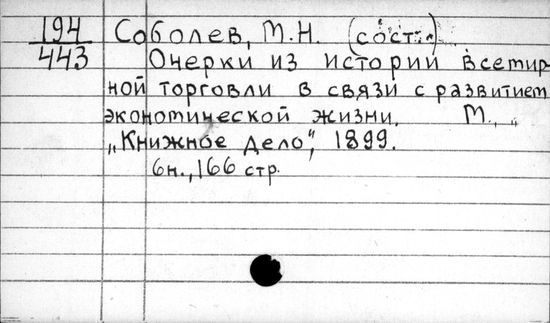 194 Соболев, М.Н. (сост.)
443 Очерки из истории Всемир-
ной торговли в связи с развитием
экономической жизни. М., „
„Книжное дело", 1899.
6н., 166 стр.